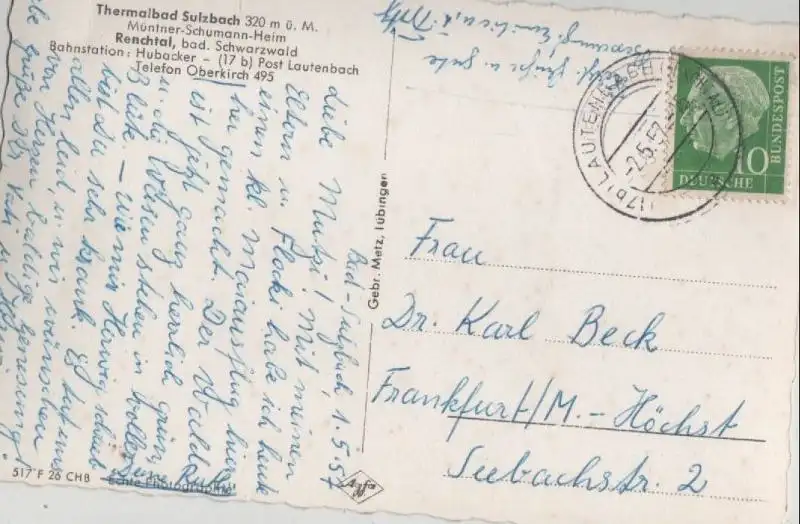 Thermalbad Sulzbach 320 m ü. M.
Müntner-Schumann-Heim
Renchtal, bad. Schwarzwald
Bahnstation: Hubacker - (17 b) Post Lautenbach
Telefon Oberkirch 495
Bad-Sulzbach 1.5.57
Liebe Mutzi! Mit meinen
Eltern u. Flocki habe ich heute
einen kl. Maiausflug hier-
her gemacht. Der Wald
ist jetzt ganz herrlich grün,
u. die Wiesen stehen in voller
Blüte. – Wie mir Herwig schrieb
bist du sehr krank. Es tut uns
allen leid, u. wir wünschen
von Herzen baldige Genesung!
Liebe Grüße
Deine Ruth
Echte Photographie
517 F 26 CHB
Gebr. Metz, Tübingen
Agfa
(17b) LAUTENBACH
-2.5.57
10
DEUTSCHE
BUNDESPOST
Frau
Dr. Karl Beck
Frankfurt/M.-Höchst
Seebachstr. 2